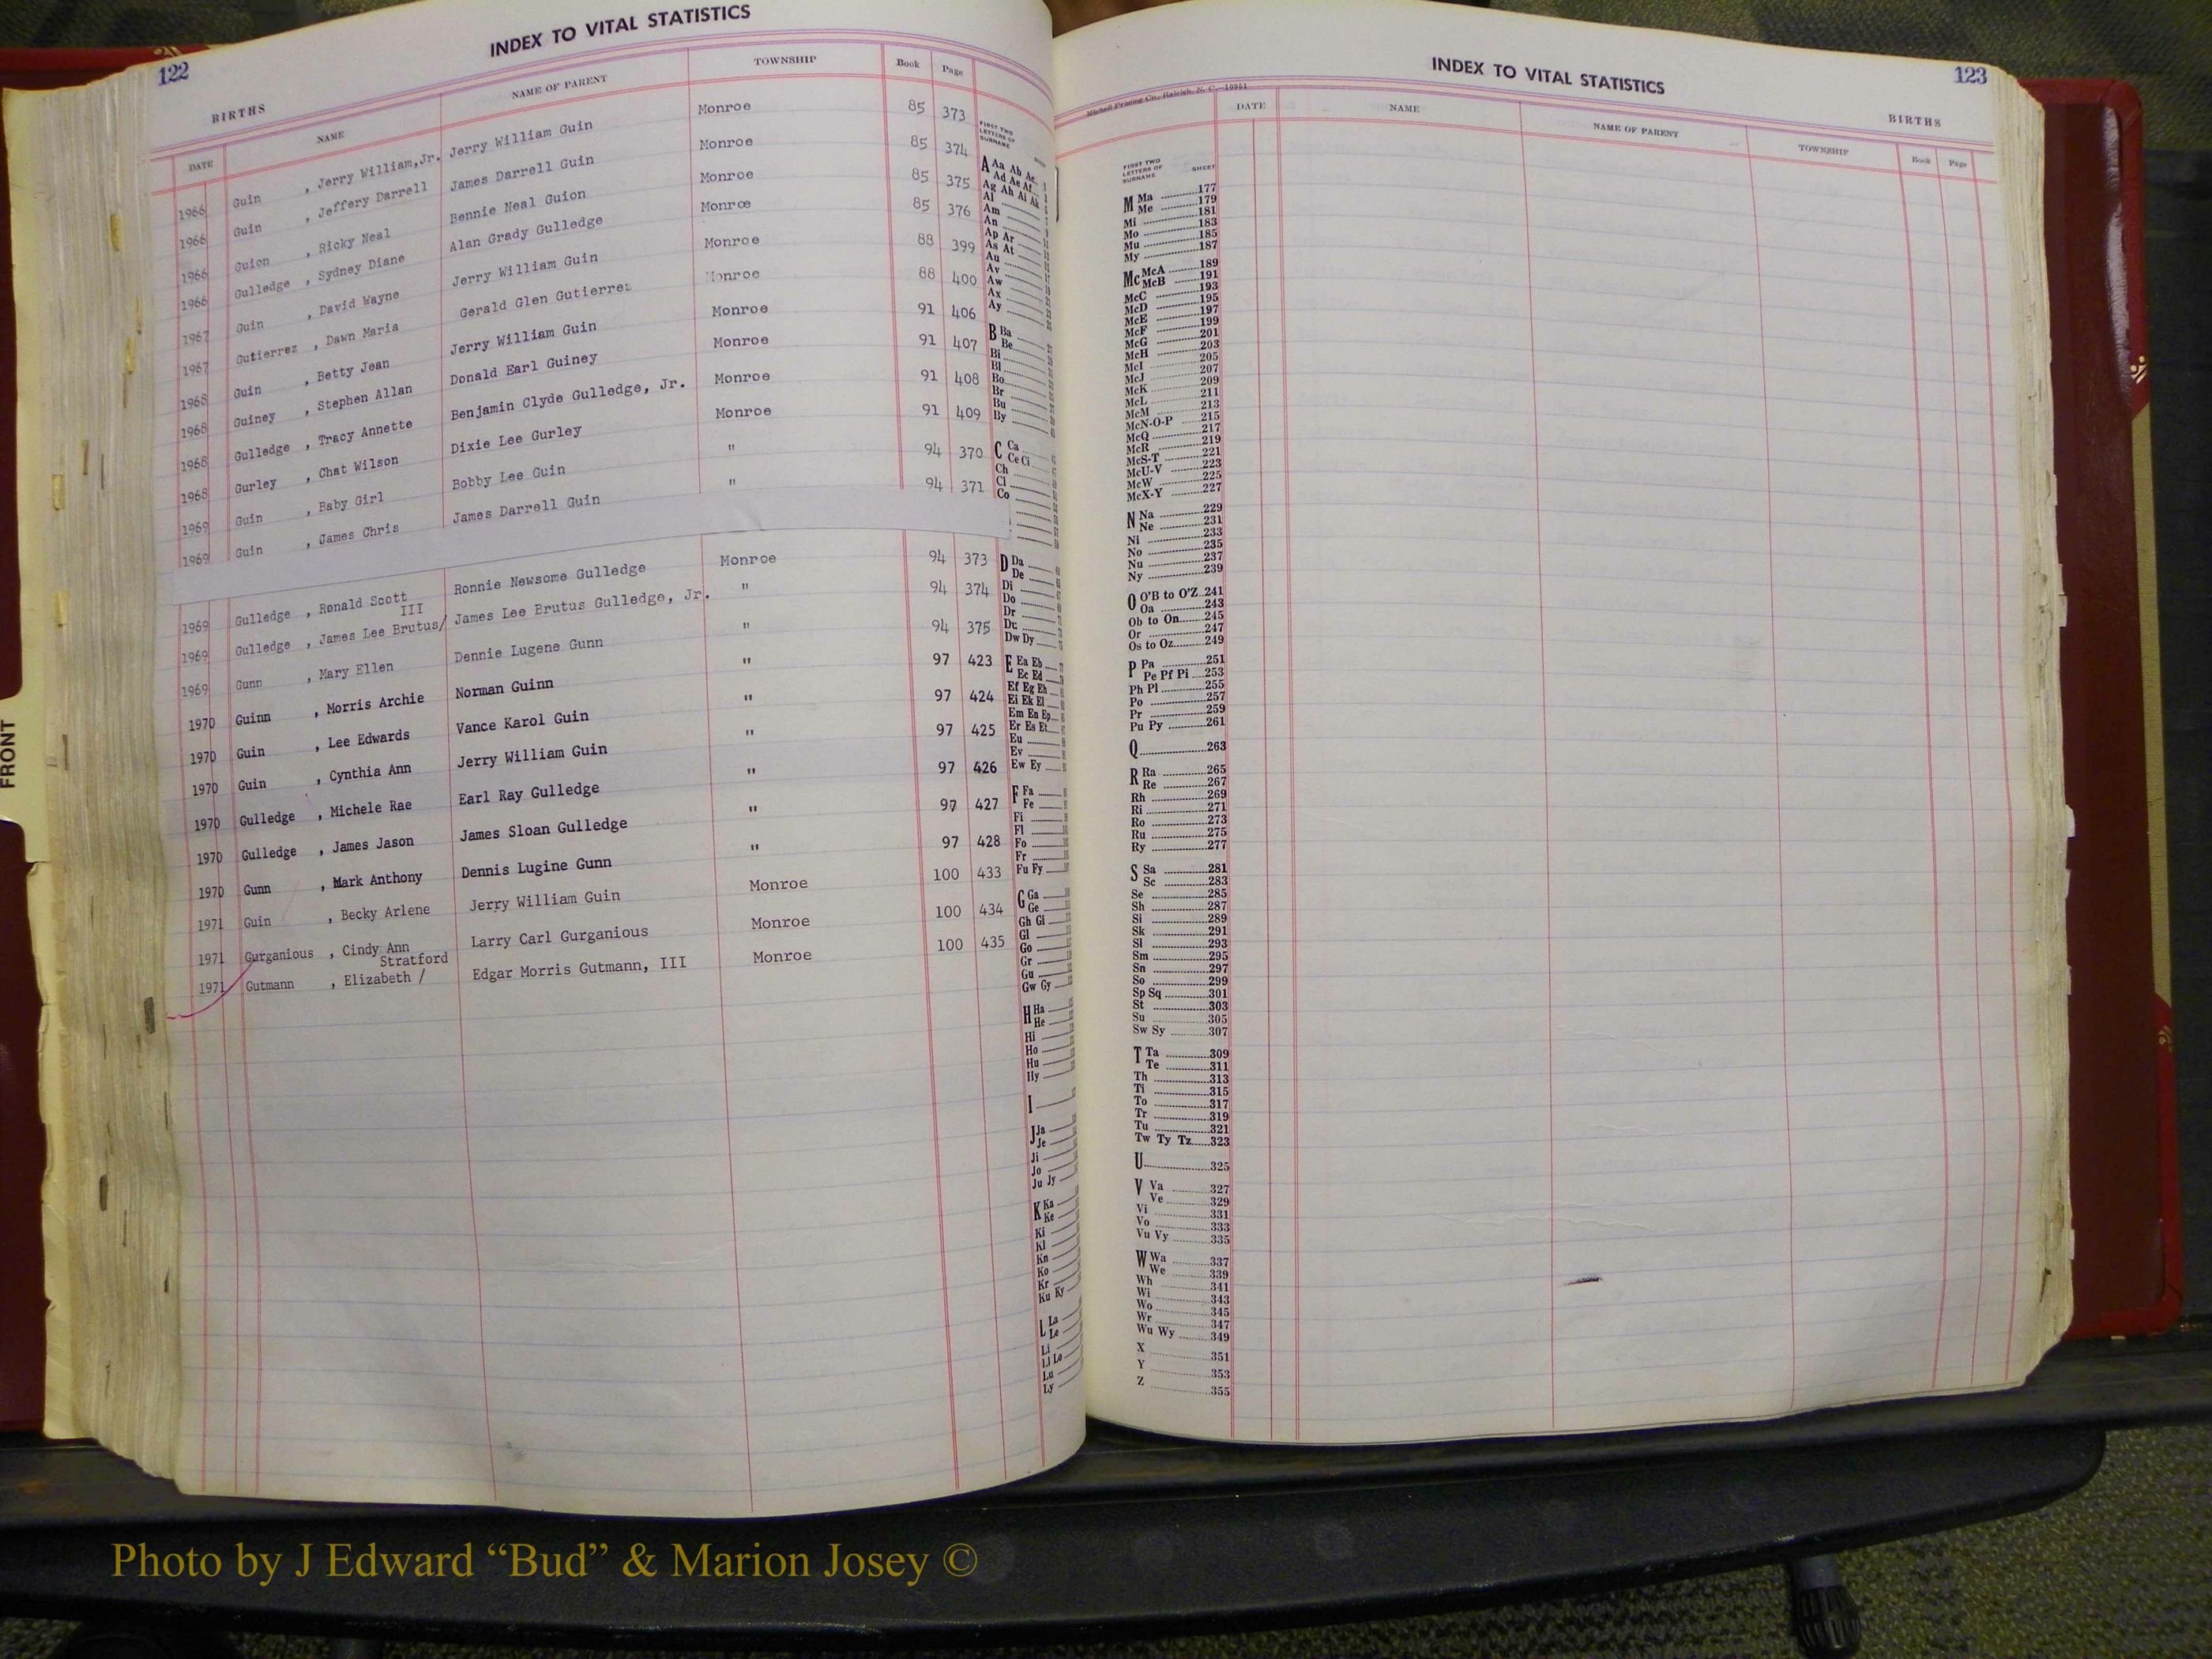 122
INDEX TO VITAL STATISTICS
BIRTHS
DATE NAME NAME OF PARENT TOWNSHIP Book Page
1966 Guin , Jerry William, Jr. Jerry William Guin Monroe 85 373
1966 Guin , Jeffery Darrell James Darrell Guin Monroe 85 374
1966 Guion , Ricky Neal Bennie Neal Guion Monroe 85 375
1966 Gulledge , Sydney Diane Alan Grady Gulledge Monroe 85 376
1967 Guin , David Wayne Jerry William Guin Monroe 88 399
1967 Gutierrez , Dawn Maria Gerald Glen Gutierrez Monroe 88 400
1968 Guin , Betty Jean Jerry William Guin Monroe 91 406
1968 Guiney , Stephen Allan Donald Earl Guiney Monroe 91 407
1968 Gulledge , Tracy Annette Benjamin Clyde Gulledge, Jr. Monroe 91 408
1968 Gurley , Chat Wilson Dixie Lee Gurley Monroe 91 409
1969 Guin , Baby Girl Bobby Lee Guin " 94 370
1969 Guin , James Chris James Darrell Guin " 94 371
1969 Gulledge , Ronald Scott Ronnie Newsome Gulledge Monroe 94 373
III
1969 Gulledge , James Lee Brutus/ James Lee Brutus Gulledge, Jr. " 94 374
1969 Gunn , Mary Ellen Dennie Lugene Gunn " 94 375
1970 Guinn , Morris Archie Norman Guinn " 97 423
1970 Guin , Lee Edwards Vance Karol Guin " 97 424
1970 Guin , Cynthia Ann Jerry William Guin " 97 425
1970 Gulledge , Michele Rae Earl Ray Gulledge " 97 426
1970 Gulledge , James Jason James Sloan Gulledge " 97 427
1970 Gunn , Mark Anthony Dennis Lugine Gunn " 97 428
1971 Guin , Becky Arlene Jerry William Guin Monroe 100 433
1971 Gurganious , Cindy Ann Larry Carl Gurganious Monroe 100 434
Stratford
1971 Gutmann , Elizabeth / Edgar Morris Gutmann, III Monroe 100 435
FIRST TWO
LETTERS OF
SURNAME
A Aa Ab Ac
Ad Ae Af
Ag Ah Ai Ak
Al
Am
An
Ap Ar
As At
Au
Av
Aw
Ax
Ay
B Ba
Be
Bi
Bl
Bo
Br
Bu
By
C Ca
Ce Ci
Ch
Cl
Co
D Da
De
Di
Do
Dr
Du
Dw Dy
E Ea Eb
Ec Ed
Ef Eg Eh
Ei Ek El
Em En Ep
Er Es Et
Eu
Ev
Ew Ey
F Fa
Fe
Fi
Fl
Fo
Fr
Fu Fy
G Ga
Ge
Gh Gi
Gl
Go
Gr
Gu
Gw Gy
H Ha
He
Hi
Ho
Hu
Hy
I
J Ja
Je
Ji
Jo
Ju Jy
K Ka
Ke
Ki
Kl
Kn
Ko
Kr
Ku Ky
L La
Le
Li
Ll Lo
Lu
Ly
FRONT
INDEX TO VITAL STATISTICS
123
Mitchell Printing Co., Raleigh, N. C.—10951
BIRTHS
DATE NAME NAME OF PARENT TOWNSHIP Book Page
FIRST TWO
LETTERS OF SHEET
SURNAME
M Ma 177
Me 179
Mi 181
Mo 183
Mu 185
My 187
Mc McA 189
McB 191
McC 193
McD 195
McE 197
McF 199
McG 201
McH 203
McI 205
McJ 207
McK 209
McL 211
McM 213
McN-O-P 215
McQ 217
McR 219
McS-T 221
McU-V 223
McW 225
McX-Y 227
N Na 229
Ne 231
Ni 233
No 235
Nu 237
Ny 239
O O'B to O'Z 241
Oa 243
Ob to On 245
Or 247
Os to Oz 249
P Pa 251
Pe Pf Pi 253
Ph Pl 255
Po 257
Pr 259
Pu Py 261
Q 263
R Ra 265
Re 267
Rh 269
Ri 271
Ro 273
Ru 275
Ry 277
S Sa 281
Sc 283
Se 285
Sh 287
Si 289
Sk 291
Sl 293
Sm 295
Sn 297
So 299
Sp Sq 301
St 303
Su 305
Sw Sy 307
T Ta 309
Te 311
Th 313
Ti 315
To 317
Tr 319
Tu 321
Tw Ty Tz 323
U 325
V Va 327
Ve 329
Vi 331
Vo 333
Vu Vy 335
W Wa 337
We 339
Wh 341
Wi 343
Wo 345
Wr 347
Wu Wy 349
X 351
Y 353
Z 355
Photo by J Edward “Bud” & Marion Josey ©